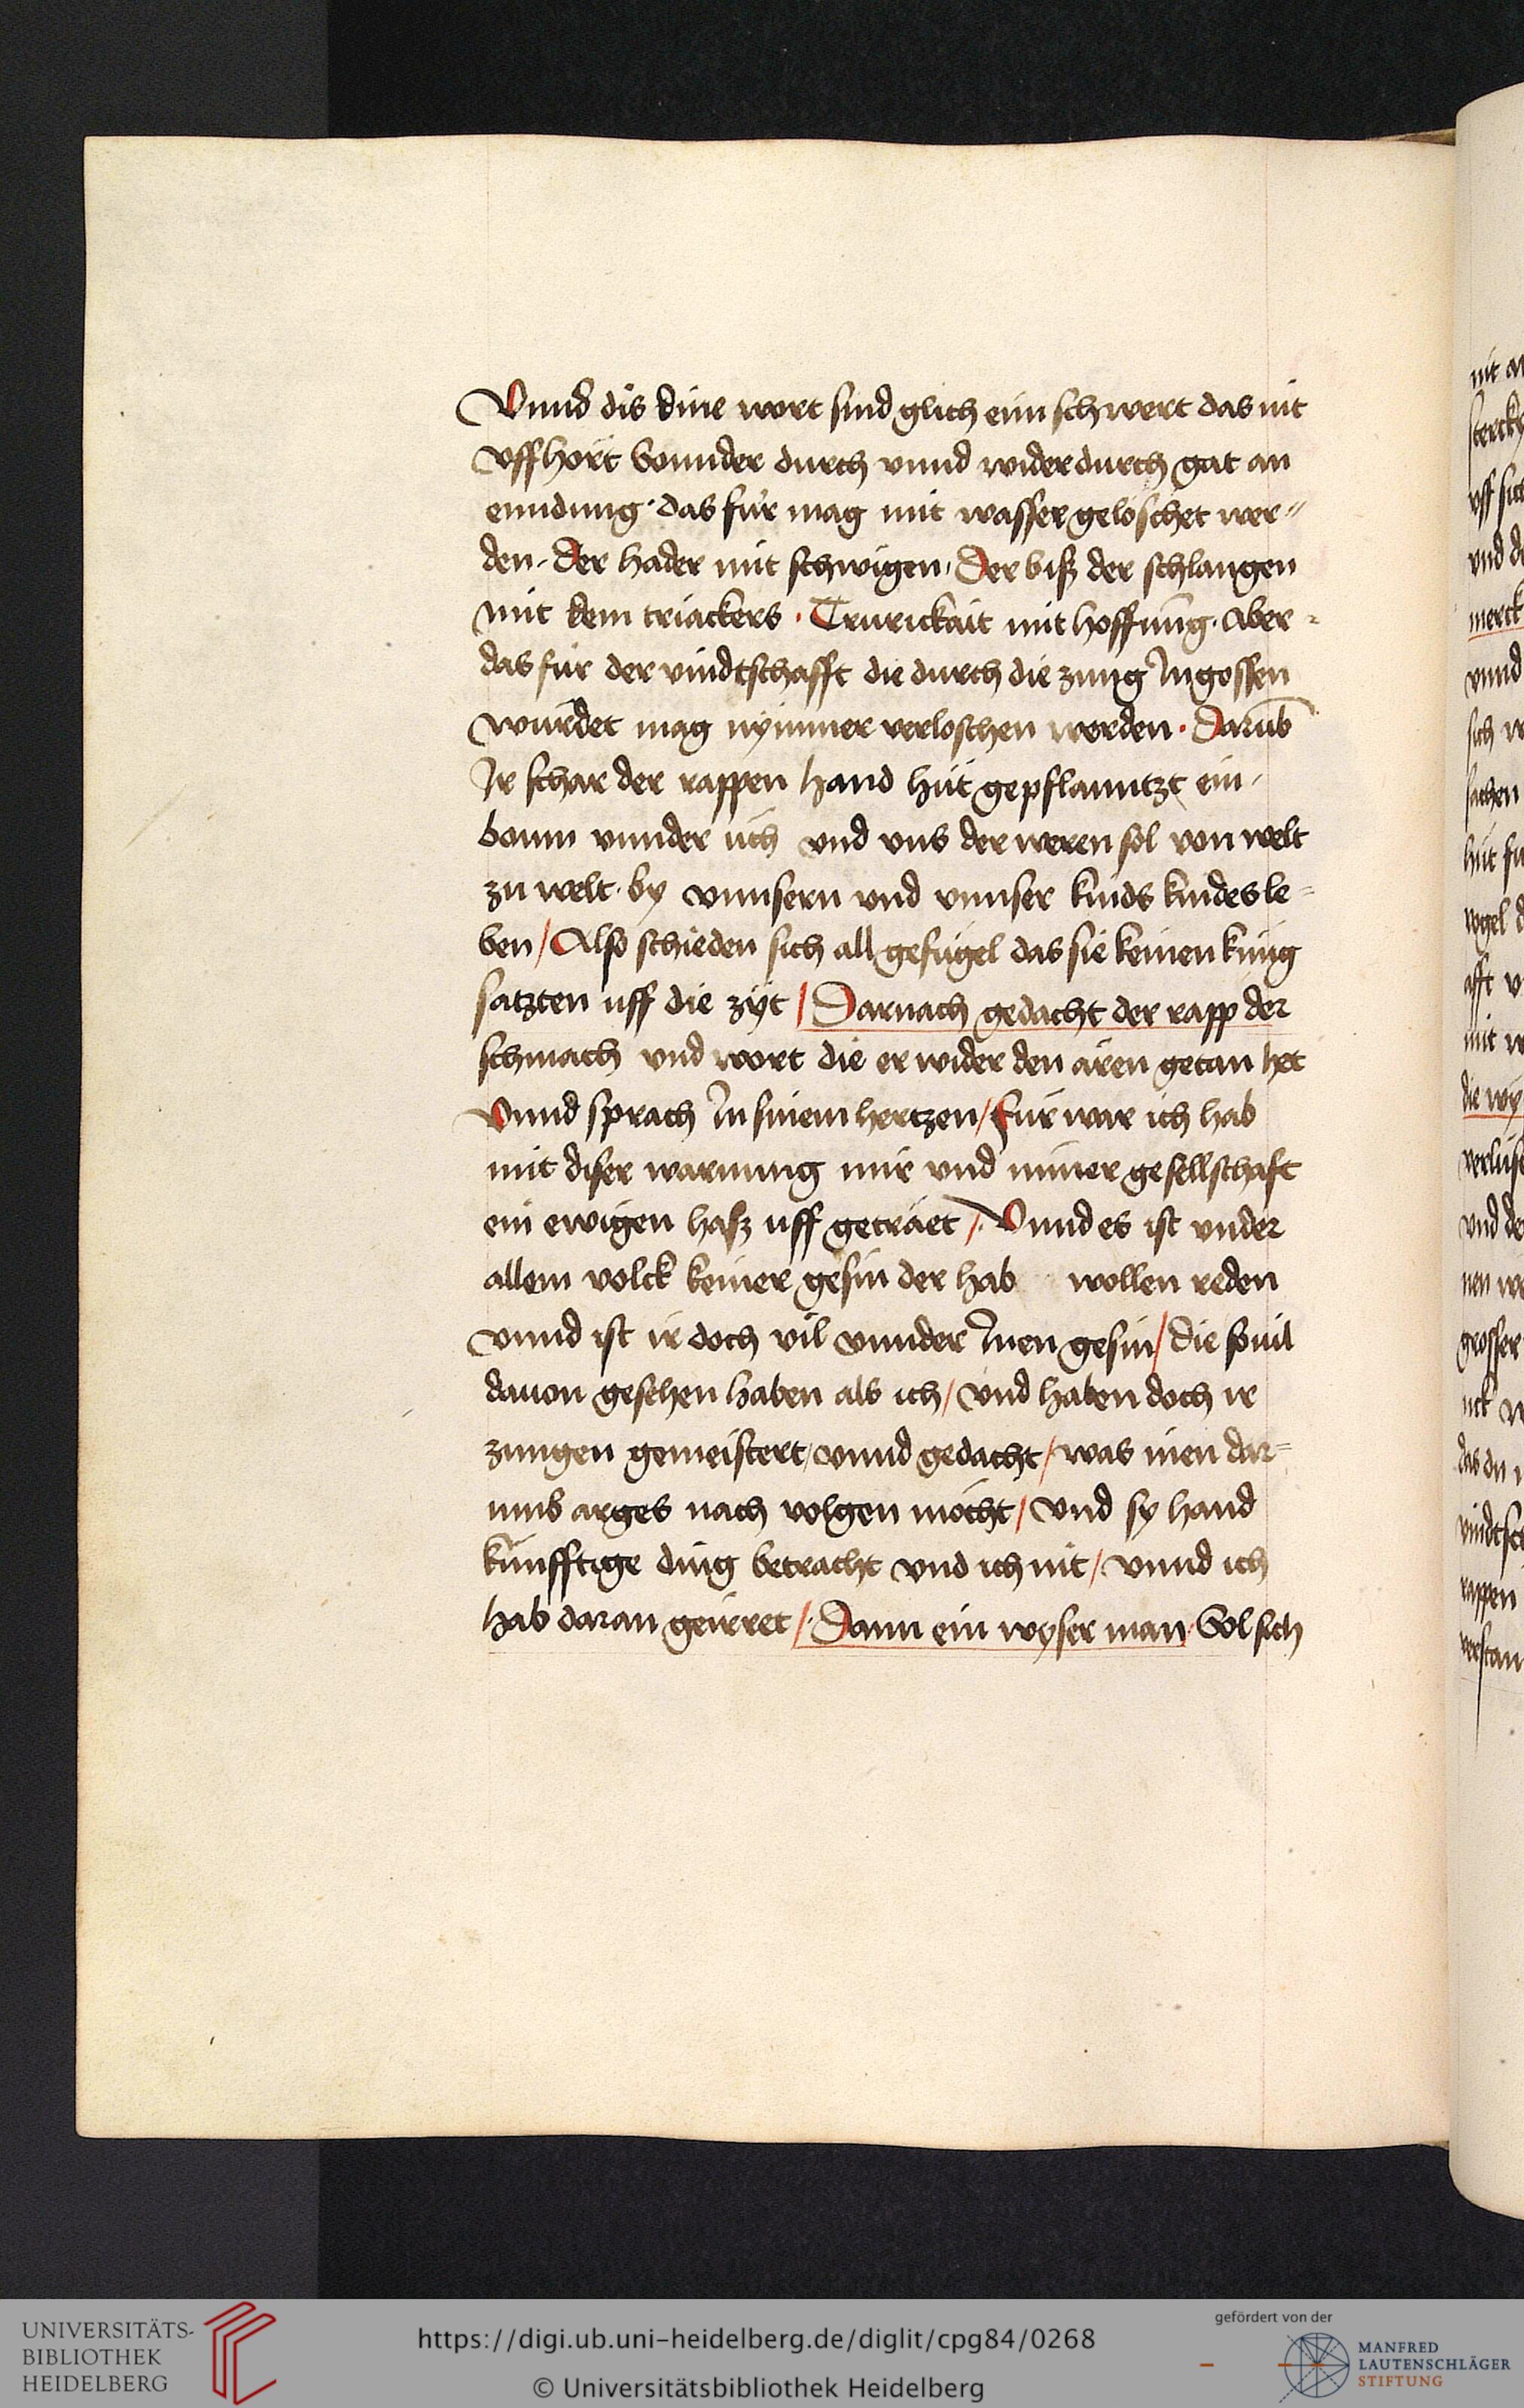 Vnnd dis dine wort sind glich eim schwert das nit
vffhört Sonnder durch vnnd widerdurch gat an
enndung · das für mag mit wasser gelöschet wer=
den · Der hader mit schwigen · Der biß der schlangen
mit dem triackers · Trurickait mit hoffnung · Aber=
das für der vindtschafft die durch die zung Ingossen
würdet mag nymmer verloschen werden · Darūb
Ir schar der rappen hand hüt gepflanntzt ein
boum vnnder üch vnd vns der weren sol von welt
zu welt · by vnnsern vnd vnnser kinds kindes le=
ben / Also schieden sich all gefügel das sie keinen küng
satzten uff die zyt / Darnach gedacht der rapp der
schmach vnd wort die er wider den aren getan het
Vnnd sprach In sinem hertzen / Für war ich hab
mit diser warnung mir vnd miner gesellschaft
ein ewigen hasz uff geträet / Vnnd es ist vnder
allem volck keiner gesin der hab wollen reden
vnnd ist ir doch vil vnnder Inen gesin / die souil
dauon gesehen haben als ich / vnd haben doch ir
zungen gemeistert / vnnd gedacht / was inen dar=
umb arges nach volgen möcht / vnd sy hand
künfftige ding betracht vnd ich nit / vnnd ich
hab daran geirret / Dann ein wyser man Sol sich
nit
vff sich
merck
vnnd
sich
sachen
mit
die wy
vnd
grosser
das du
rappen
UNIVERSITÄTS-
BIBLIOTHEK
HEIDELBERG
https://digi.ub.uni-heidelberg.de/diglit/cpg84/0268
© Universitätsbibliothek Heidelberg
gefördert von der
MANFRED
LAUTENSCHLÄGER
STIFTUNG